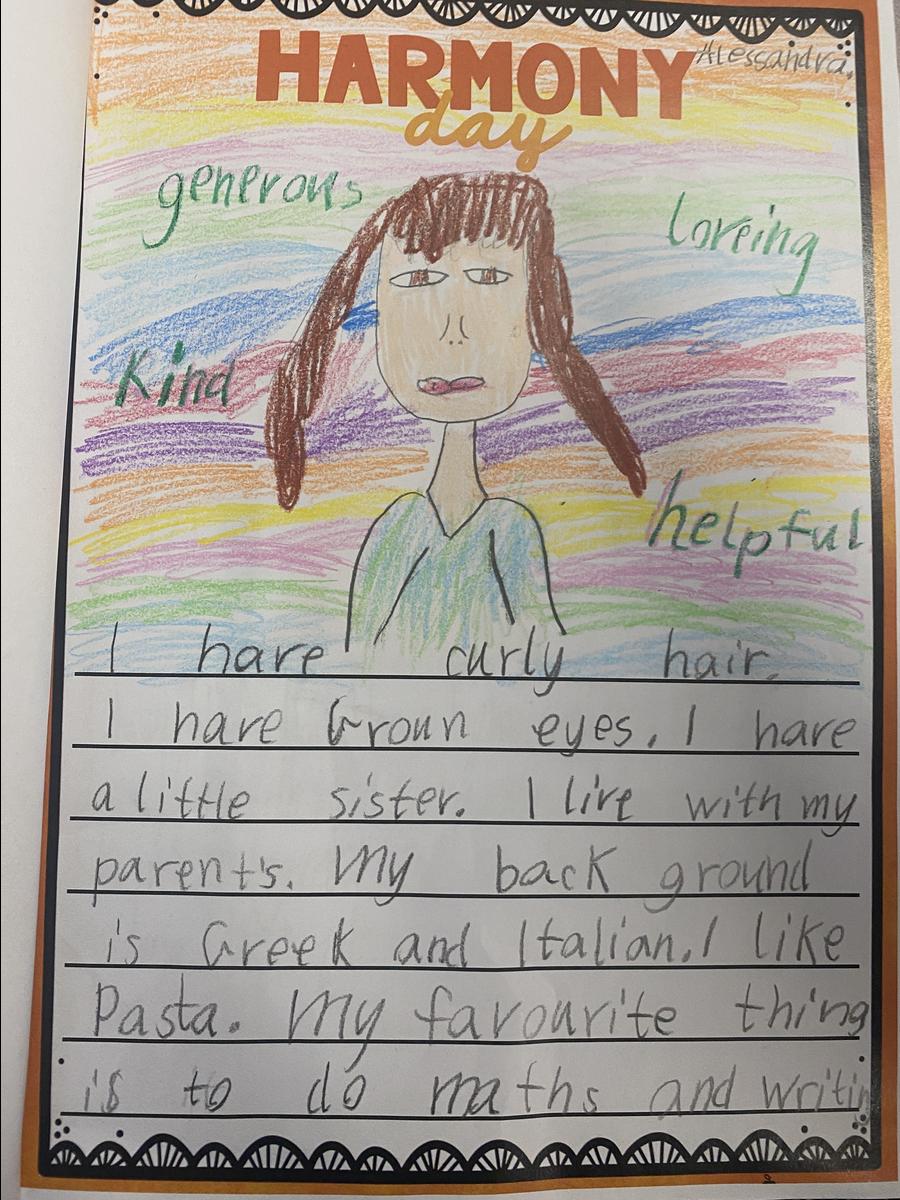 HARMONY
day
Alessandra.
generous
loveing
Kind
helpful
I have curly hair.
I have broun eyes. I have
a little sister. I live with my
parent's. My back ground
is Greek and Italian. I like
Pasta. My favourite thing
is to do maths and writin